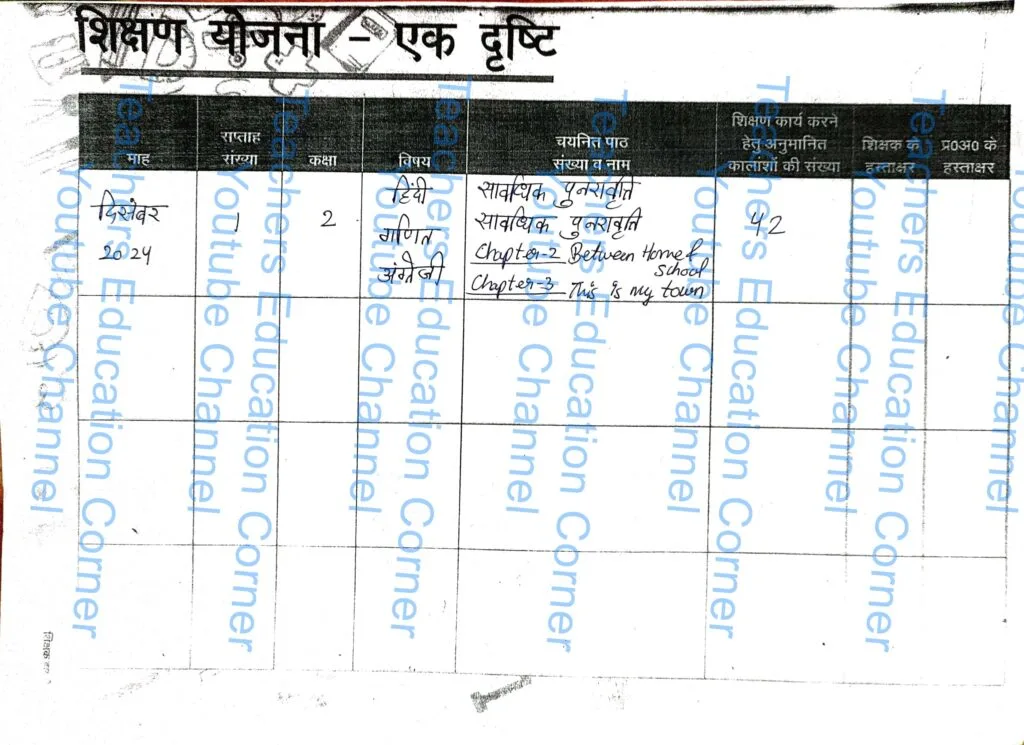 शिक्षण योजना – एक दृष्टि
माह
सप्ताह
संख्या
कक्षा
विषय
चयनित पाठ
संख्या व नाम
शिक्षण कार्य करने
हेतु अनुमानित
कालांशों की संख्या
शिक्षक के
हस्ताक्षर
प्र0अ0 के
हस्ताक्षर
दिसंबर
2024
1
2
हिंदी
गणित
अंग्रेजी
सावधिक पुनरावृति
सावधिक पुनरावृति
Chapter-2 Between Home &
school
Chapter-3 This is my town
42
Teachers Education Corner
Youtube Channel
Teachers Education Corner
Youtube Channel
Teachers Education Corner
Youtube Channel
Teachers Education Corner
Youtube Channel
Teachers Education Corner
Youtube Channel
Teachers Education Corner
Youtube Channel